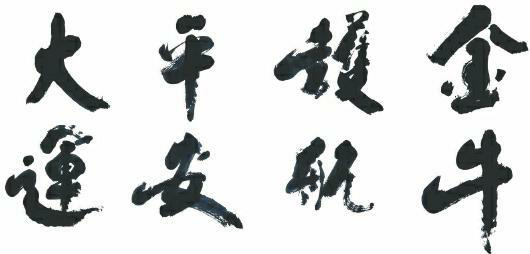 金牛
護航
平安
大運